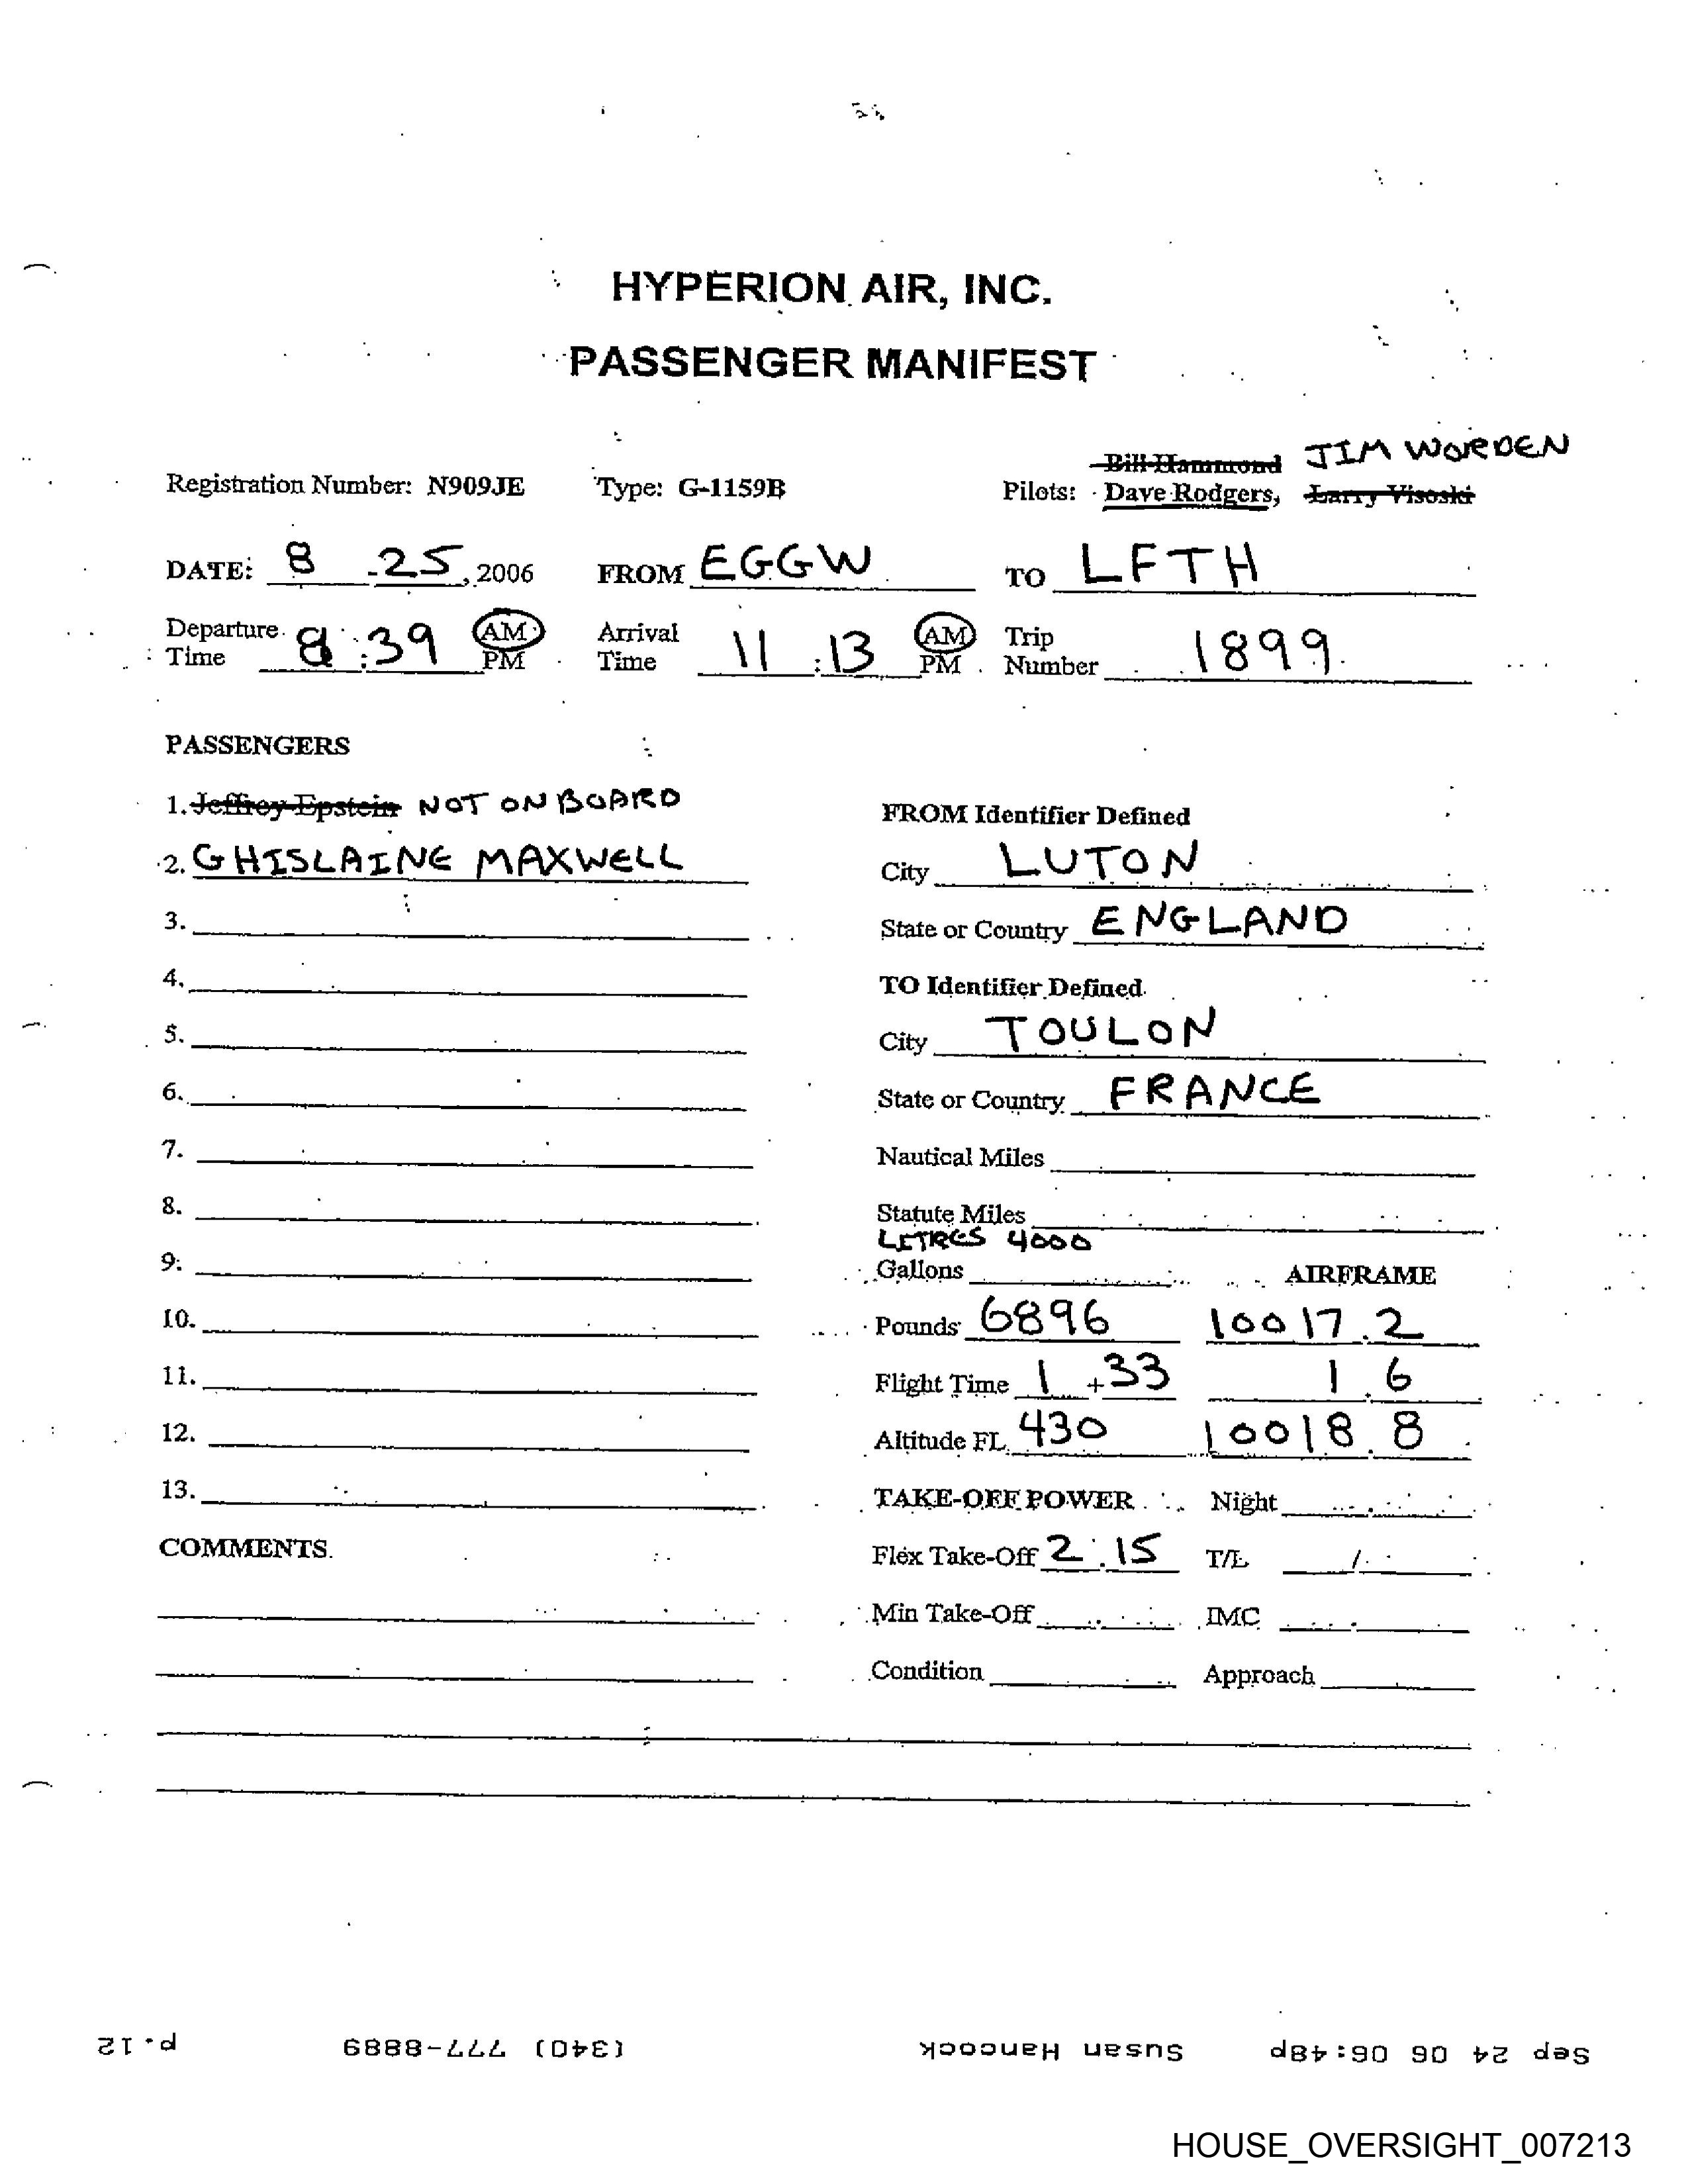 HYPERION AIR, INC.
PASSENGER MANIFEST
Bill Hammond JIM WORDEN
Registration Number: N909JE Type: G-1159B Pilots: Dave Rodgers, Larry Visoski
DATE: 8 -25, 2006 FROM EGGW TO LFTH
Departure Time 8:39 AM PM Arrival Time 11:13 AM PM Trip Number 1899
PASSENGERS
1. Jeffrey Epstein NOT ON BOARD
FROM Identifier Defined
2. GHISLAINE MAXWELL
City LUTON
3.
State or Country ENGLAND
4.
TO Identifier Defined
5.
City TOULON
6.
State or Country FRANCE
7.
Nautical Miles
8.
Statute Miles
LITRES 4000
9.
Gallons AIRFRAME
10.
Pounds 6896 10017.2
11.
Flight Time 1+33 1.6
12.
Altitude FL 430 10018.8
13.
TAKE-OFF POWER Night
COMMENTS
Flex Take-Off 2.15 T/L /
Min Take-Off IMC
Condition Approach
Sep 24 06 06:48p Susan Hancock (340) 777-8889 p.12
HOUSE_OVERSIGHT_007213